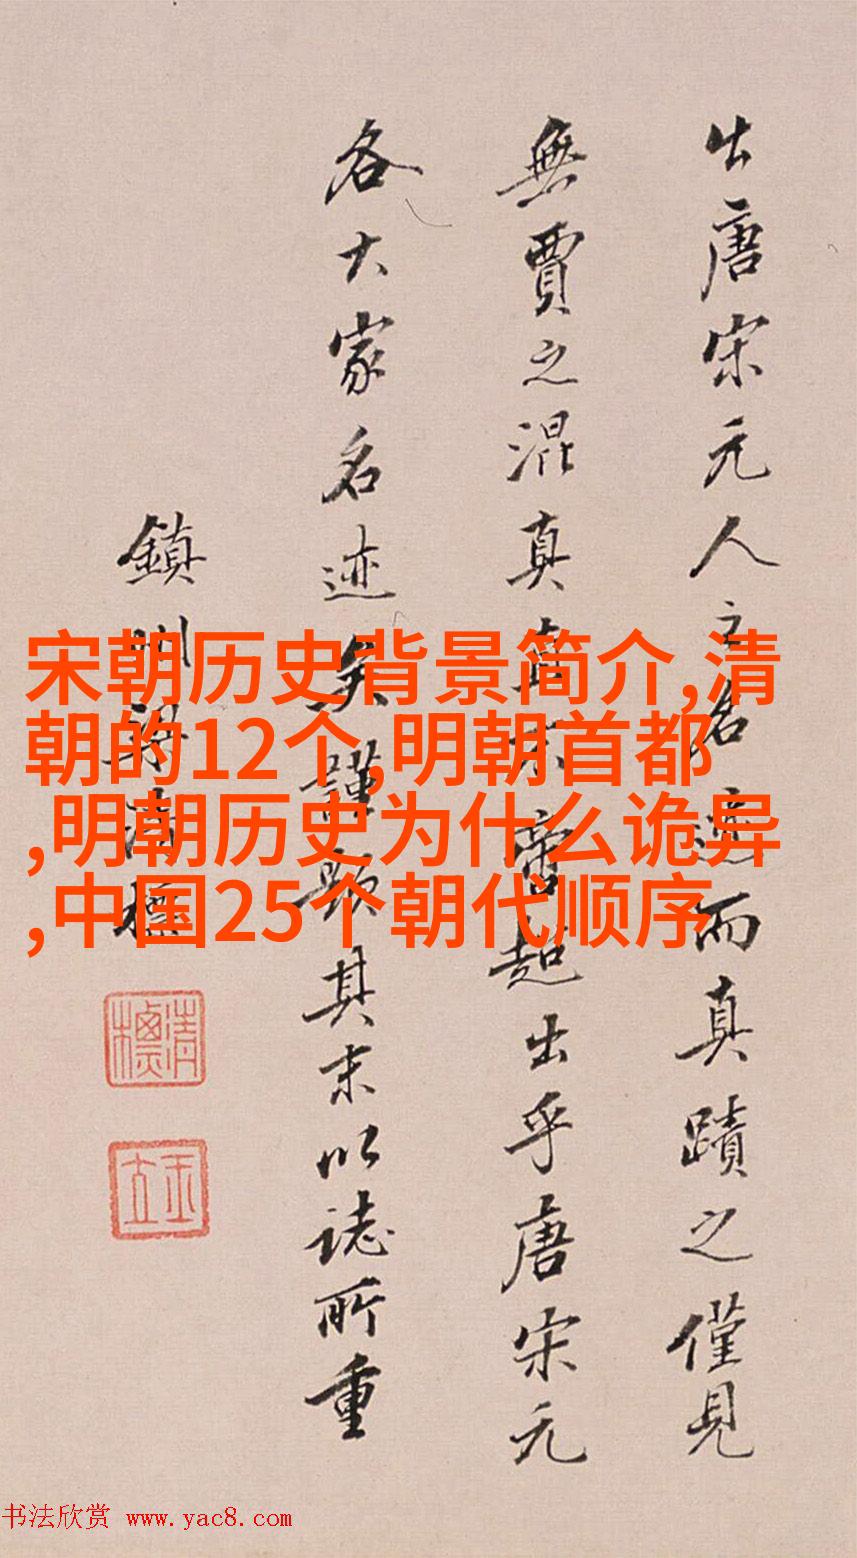 出唐宋元人之名迹而真蹟之僅見
無賈之混真
超出乎唐宋元
各大家名迹矣謹題其末以誌所重
鎮州梁清標
宋朝历史背景简介,清
朝的12个,明朝首都
,明朝历史为什么诡异
,中国25个朝代顺序
清標
玉立
书法欣赏 www.yac8.com